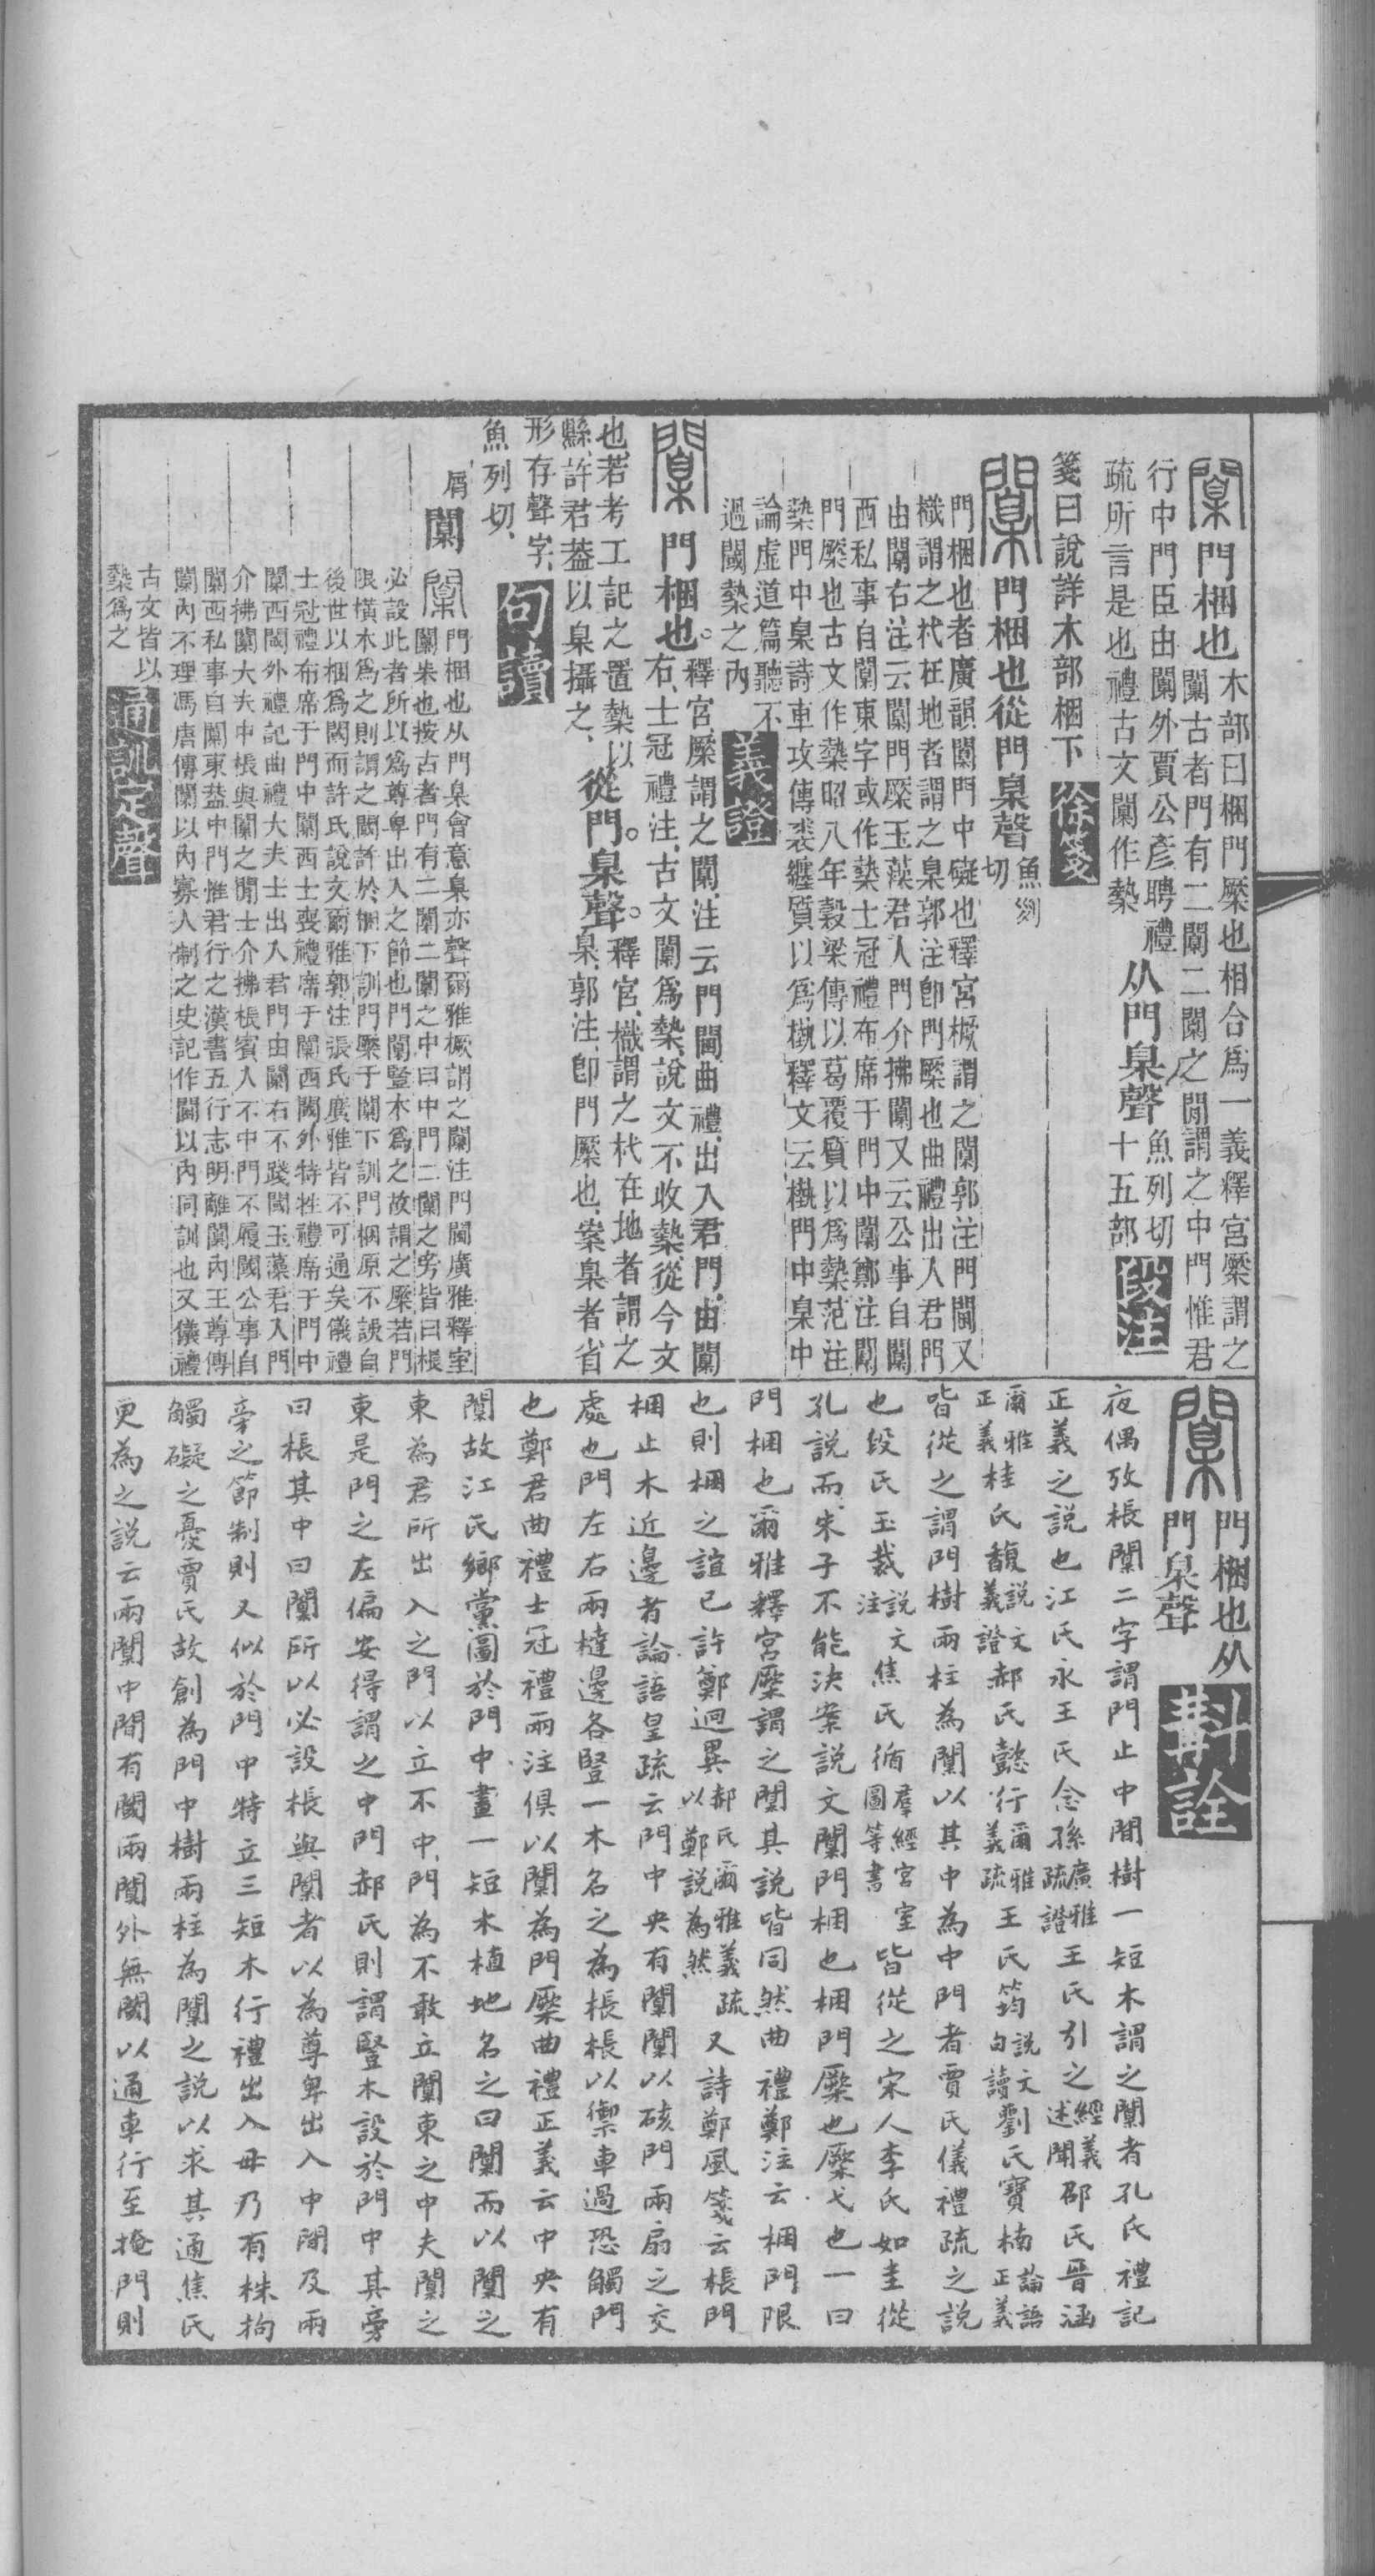 闑門梱也木部曰梱門橜也相合爲一義釋宮橜謂之
闑古者門有二闑二闑之閒謂之中門惟君
行中門臣由闑外賈公彥聘禮
疏所言是也禮古文闑作槷从門臬聲魚列切
十五部段注
箋曰說詳木部梱下徐箋
闑門梱也從門臬聲魚列切
門梱也者廣韻闑門中礙也釋宮橛謂之闑郭注門閫又
樴謂之杙在地者謂之臬郭注卽門橜也曲禮出入君門
由闑右注云闑門橜玉藻君入門介拂闑又云公事自闑
西私事自闑東字或作槷士冠禮布席于門中闑鄭注闑
門橜也古文作槷昭八年穀梁傳以葛覆質以爲槷范注
槷門中臬詩車攻傳裘纏質以爲槸釋文云槸門中臬中
論虛道篇聽不
過閾槷之內義證
闑門梱也。釋宮、橜謂之闑、注云門閫、曲禮、出入君門、由闑
右、士冠禮注、古文闑爲槷、說文不收槷、從今文
也、若考工記之置槷以
縣、許君葢以臬攝之、從門。臬聲。釋宮、樴謂之杙在地者謂之
臬、郭注、卽門橜也、案臬者省
形存聲字、句讀
魚列切、
屑闑闑門梱也从門臬會意臬亦聲爾雅橛謂之闑注門閫廣雅釋室
闑朱也按古者門有二闑二闑之中曰中門二闑之旁皆曰棖
必設此者所以爲尊卑出入之節也門闑豎木爲之故謂之橜若門
限橫木爲之則謂之閾許於梱下訓門橜于闑下訓門梱原不誤自
後世以梱爲閾而許氏說文爾雅郭注張氏廣雅皆不可通矣儀禮
士冠禮布席于門中闑西士喪禮席于闑西閾外特牲禮席于門中
闑西閾外禮記曲禮大夫士出入君門由闑右不踐閾玉藻君入門
介拂闑大夫中棖與闑之閒士介拂棖賓入不中門不履閾公事自
闑西私事自闑東葢中門惟君行之漢書五行志明離闑內王尊傳
闑內不理馮唐傳闑以內寡人制之史記作閫以內同訓也又儀禮
古文皆以
槷爲之通訓定聲
闑門梱也从
門臬聲斠詮
夜偶攷棖闑二字謂門止中間樹一短木謂之闑者孔氏禮記
正義之説也江氏永王氏念孫廣雅疏證王氏引之經義述聞邵氏晉涵
爾雅正義桂氏馥説文義證郝氏懿行爾雅義疏王氏筠説文句讀劉氏寶楠論語正義
皆從之謂門樹兩柱為闑以其中為中門者賈氏儀禮疏之説
也段氏玉裁説文注焦氏循羣經宮室圖等書皆從之宋人李氏如圭從
孔説而朱子不能決案説文闑門梱也梱門橜也橜弋也一曰
門梱也爾雅釋宮橜謂之闑其説皆同然曲禮鄭注云梱門限
也則梱之誼已許鄭迥異郝氏爾雅義疏以鄭説為然又詩鄭風箋云棖門
梱止木近邊者論語皇疏云門中央有闑闑以硋門兩扇之交
處也門左右兩橽邊各豎一木名之為棖棖以禦車過恐觸門
也鄭君曲禮士冠禮兩注俱以闑為門橜曲禮正義云中央有
闑故江氏鄉黨圖於門中畫一短木植地名之曰闑而以闑之
東為君所出入之門以立不中門為不敢立闑東之中夫闑之
東是門之左偏安得謂之中門郝氏則謂豎木設於門中其旁
曰棖其中曰闑所以必設棖與闑者以為尊卑出入中間及兩
旁之節制則又似於門中特立三短木行禮出入毋乃有株拘
觸礙之憂賈氏故創為門中樹兩柱為闑之説以求其通焦氏
更為之説云兩闑中間有閾兩闑外無閾以通車行至掩門則